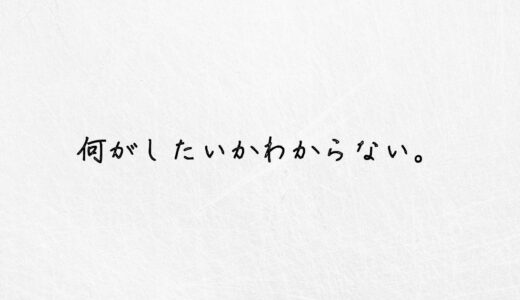 何がしたいかわからない。